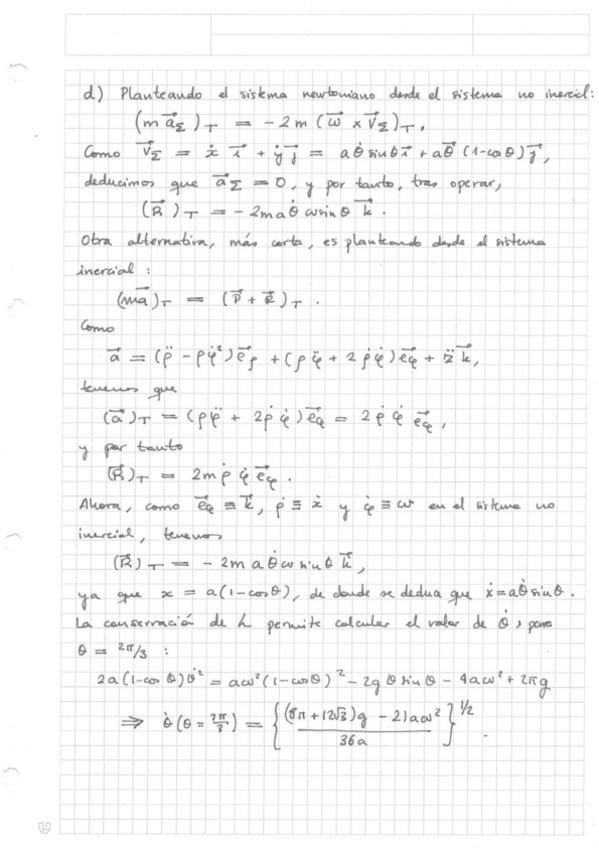 d) Planteando el sistema newtoniano desde el sistema no inercial:
(m a⃗_Σ)_T = -2m (ω⃗ x v⃗_Σ)_T.
Como v⃗_Σ = ẋ i⃗ + ẏ j⃗ = aθ̇ sinθ i⃗ + aθ̇ (1-cosθ) j⃗,
deducimos que a⃗_Σ = 0, y por tanto, tras operar,
(R⃗)_T = -2maθ̇ ω sin θ k⃗.
Otra alternativa, más corta, es planteando desde el sistema
inercial:
(ma⃗)_T = (P⃗ + R⃗)_T.
Como
a⃗ = (ρ̈ - ρφ̇²) e⃗ρ + (ρ φ̈ + 2 ρ̇ φ̇) e⃗φ + z̈ k⃗,
tenemos que
(a⃗)_T = (ρφ̈ + 2ρ̇ φ̇) e⃗φ = 2 ρ̇ φ̇ e⃗φ,
y por tanto
(R⃗)_T = 2m ρ̇ φ̇ e⃗φ.
Ahora, como e⃗φ ≡ k⃗, ρ̇ ≡ ẋ y φ̇ ≡ ω en el sistema no
inercial, tenemos
(R⃗)_T = -2m a θ̇ ω sin θ k⃗,
ya que x = a(1-cosθ), de donde se deduce que ẋ = aθ̇ sin θ.
La conservación de h permite calcular el valor de θ̇, para
θ = 2π/3 :
2a(1-cos θ)θ̇² = aω²(1-cosθ)² - 2g θ sin θ - 4aω² + 2πg
⇒ θ̇(θ = 2π/3) = {((8π + 12√3)g - 21aω²)/36a}^1/2.